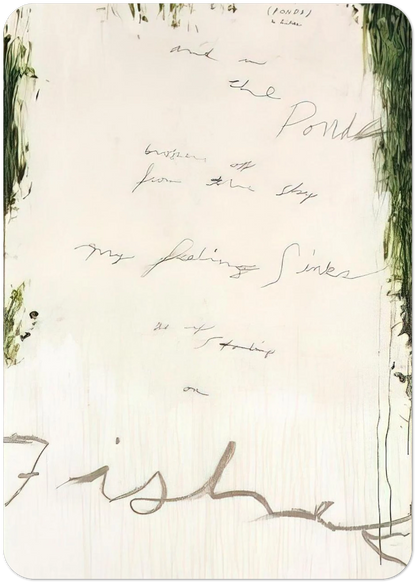 (PONDS)
and in
the
Ponds
broken off
from the sky
my feeling Sinks
as if
Standing
on
Fishes